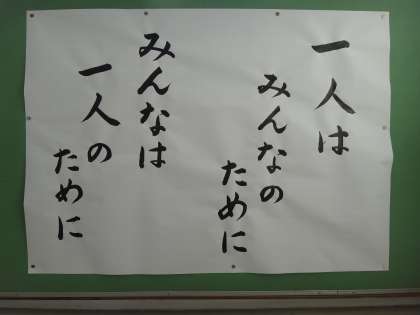 一人は
みんなの
ために
みんなは
一人の
ために